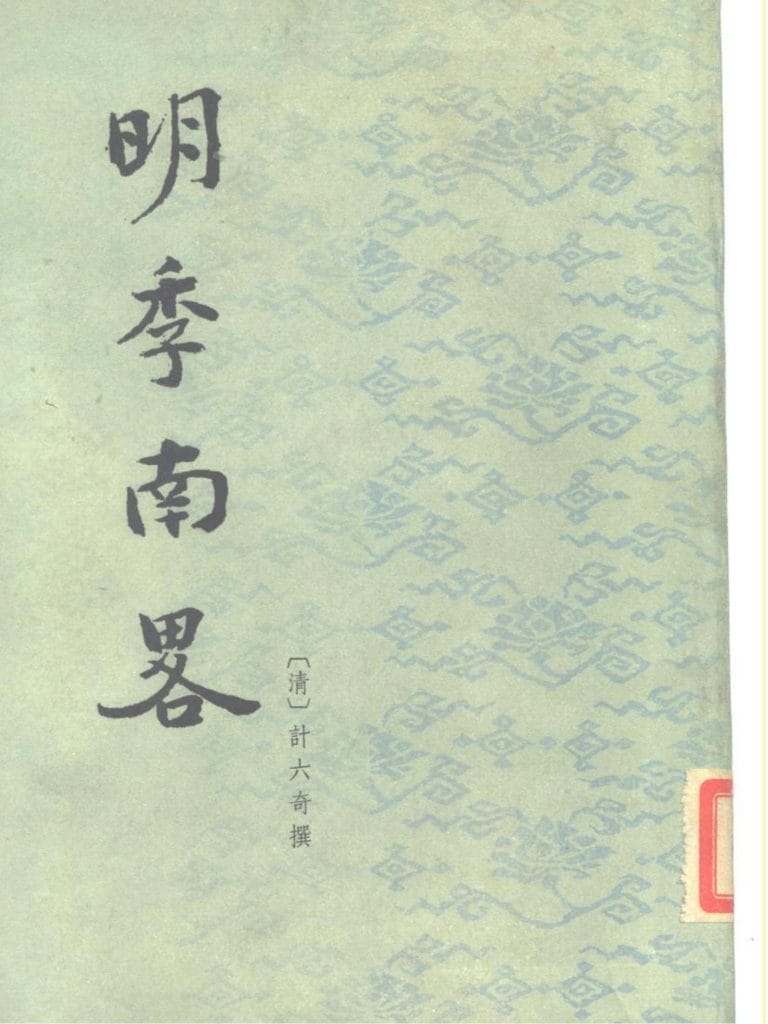 明季南畧
〔清〕計六奇撰